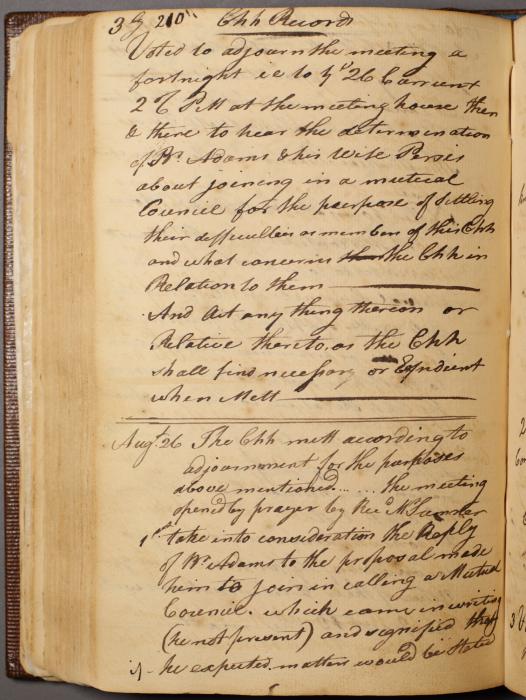 210 Chh Records
Voted to adjourn the meeting a
fortnight i e to yᵉ 26 Current
2 PM at the meeting house then
& there to hear the determination
of Br Adams & his wife Persis
about joining in a mutual
Council for the purpose of Settling
their difficulties as members of this Chh
and what concerns the Chh in
Relation to them
And Act any thing thereon or
Relative thereto, as the Chh
shall find necessary or Expedient
when Mett
Augt. 26 The Chh mett according to
adjournment for the purposes
above mentioned.... the meeting
opened by prayer by Revd Mr Sumner
1st take into consideration the Reply
of Br Adams to the proposal made
him to join in calling a Mutual
Council. which came in writing
(he not present) and signified that
he expected matters would be Stated